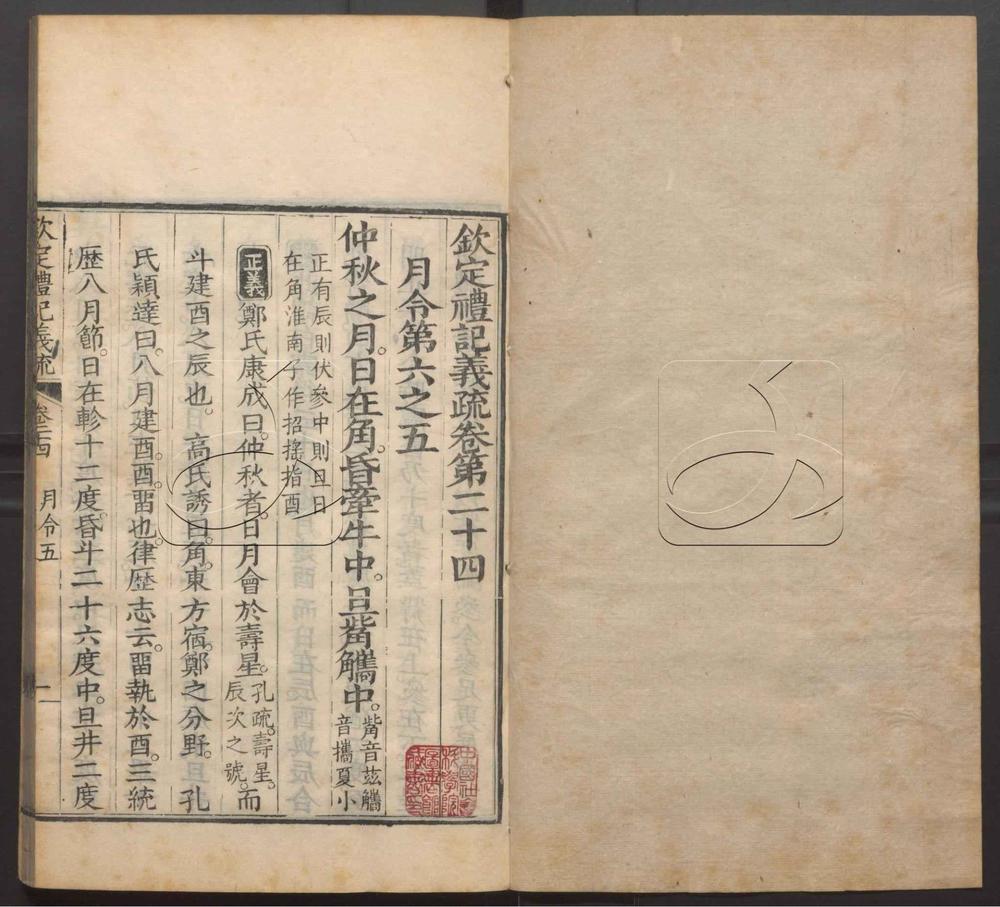 欽定禮記義疏卷第二十四
月令第六之五
仲秋之月。日在角。昏牽牛中。旦觜觿中。觜音玆觿音攜夏小
正有辰則伏參中則旦日在角淮南子作招搖指酉
正義 鄭氏康成曰。仲秋者。日月會於壽星。孔疏。壽星。辰次之號。而
斗建酉之辰也。 高氏誘曰。角。東方宿。鄭之分野。 孔
氏穎達曰。八月建酉。酉。畱也。律歷志云。畱執於酉。三統
歷八月節。日在軫十二度。昏斗二十六度中。旦井二度
欽定禮記義疏 卷二十四 月令五 一